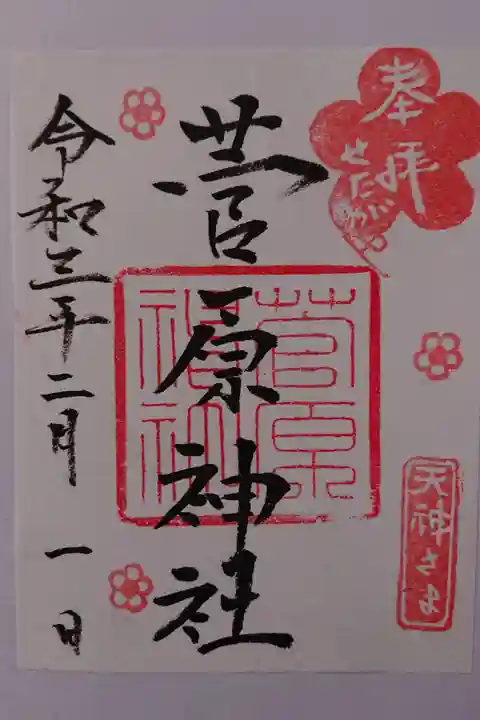 奉拝
せたがや
天神さま
菅原神社
菅原
神社
令和三年二月一日